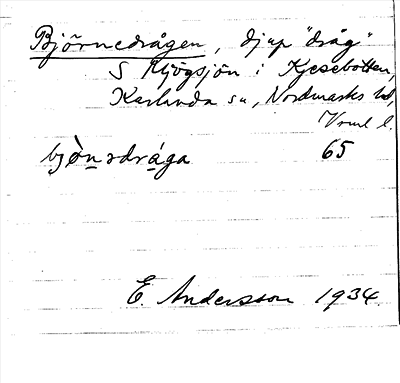 Björnedrågen, djup "dråg"
S Mjögsjön i Kjesebotten,
Karlanda sn, Nordmarks hd,
Vrml l.
bjö̀nədråga 65
E. Andersson 1934